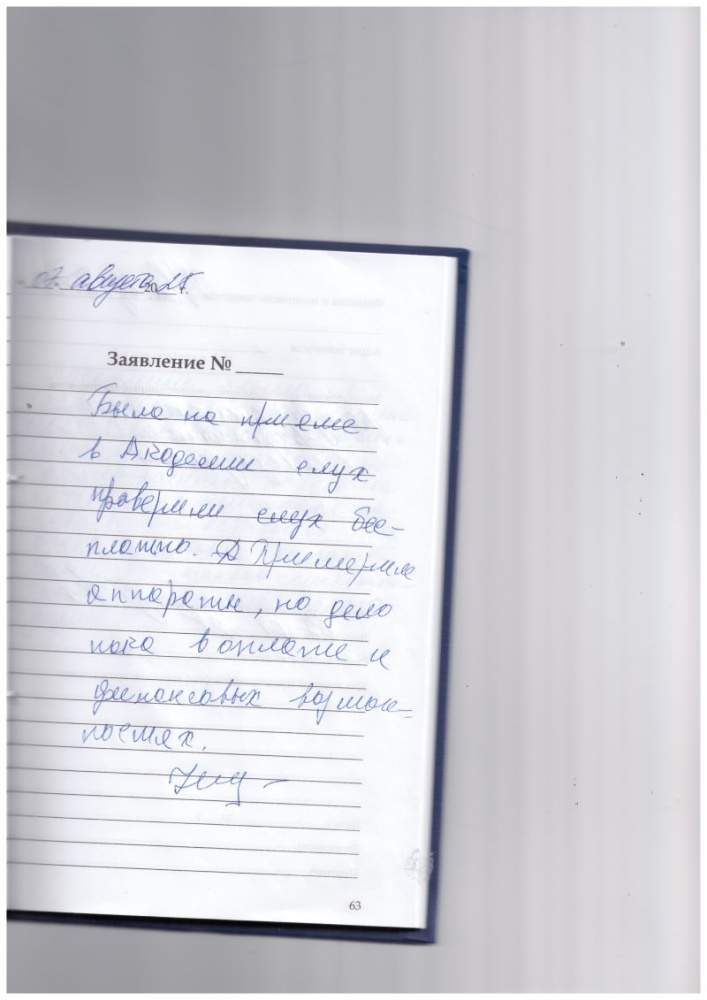 07 августа 2025 г.
Заявление № ____
Была на приеме
в Академии слух
проверили слух бес-
платно. Примерила
аппараты, но дело
пока в оплате и
финансовых возмож-
ностях.
63